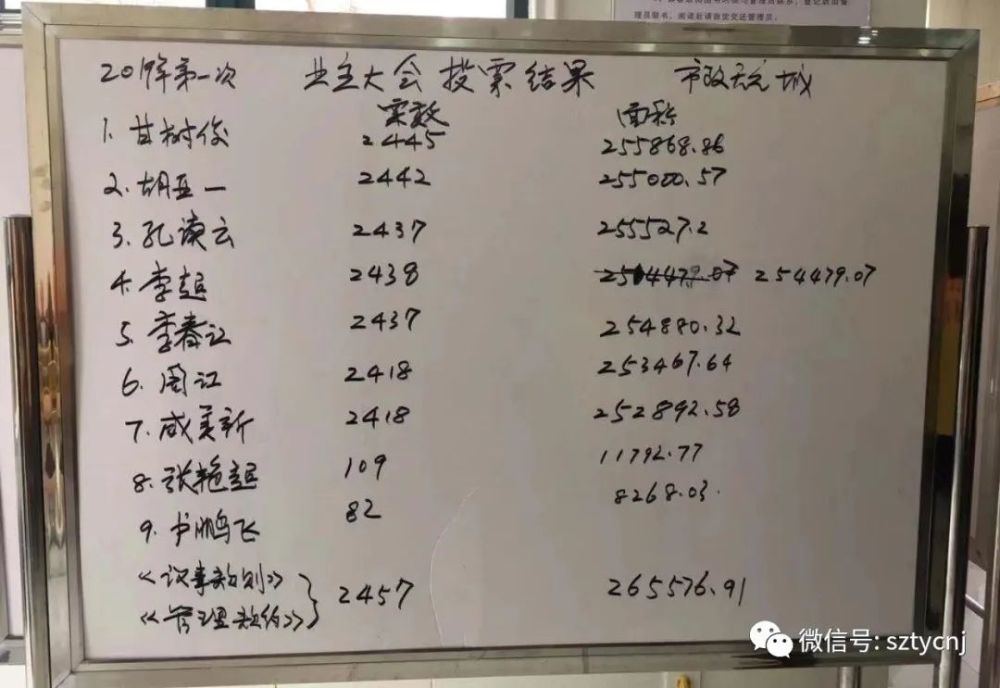 理员取书，阅读后请自觉交还管理员；
2019年第一次 业主大会投票结果 市政天元城
票数 面积
1. 甘树俊 2445 255868.86
2. 胡亚一 2442 255000.57
3. 孔读云 2437 255527.2
4. 李超 2438 254479.07
5. 李春江 2437 254880.32
6. 周江 2418 253467.64
7. 咸美新 2418 252892.58
8. 张艳超 109 11792.77
9. 鹏飞 82 8268.03
《议事规则》 2457 265576.91
《管理规约》
微信号: sztycnj